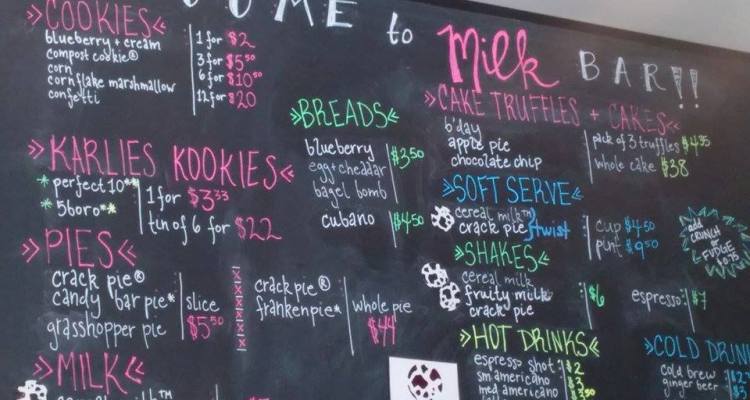 COME to Milk BAR!!
»COOKIES«
blueberry + cream
compost cookie®
corn
cornflake marshmallow
confetti
1 for $2
3 for $5⁵⁰
6 for $10⁵⁰
12 for $20
»KARLIES KOOKIES«
*perfect 10**
*5boro**
1 for $3³³
tin of 6 for $22
»PIES«
crack pie®
candy bar pie*
grasshopper pie
slice
$5⁵⁰
crack pie®
frankenpie*
whole pie
$44
»MILK«
»BREADS«
blueberry
egg + cheddar
bagel bomb
$3⁵⁰
cubano
$4⁵⁰
»CAKE TRUFFLES + CAKES«
b'day
apple pie
chocolate chip
pack of 3 truffles $4³⁵
whole cake $38
»SOFT SERVE«
cereal milk™
crack pie
twist
cup $4⁵⁰
pint $9⁵⁰
add
CRUNCH
or
FUDGE
$0.75
»SHAKES«
cereal milk
fruity milk
crack pie
$6
espresso: $7
»HOT DRINKS«
espresso shot: $2
sm americano $3
med americano $3⁵⁰
»COLD DRIN
cold brew
ginger beer